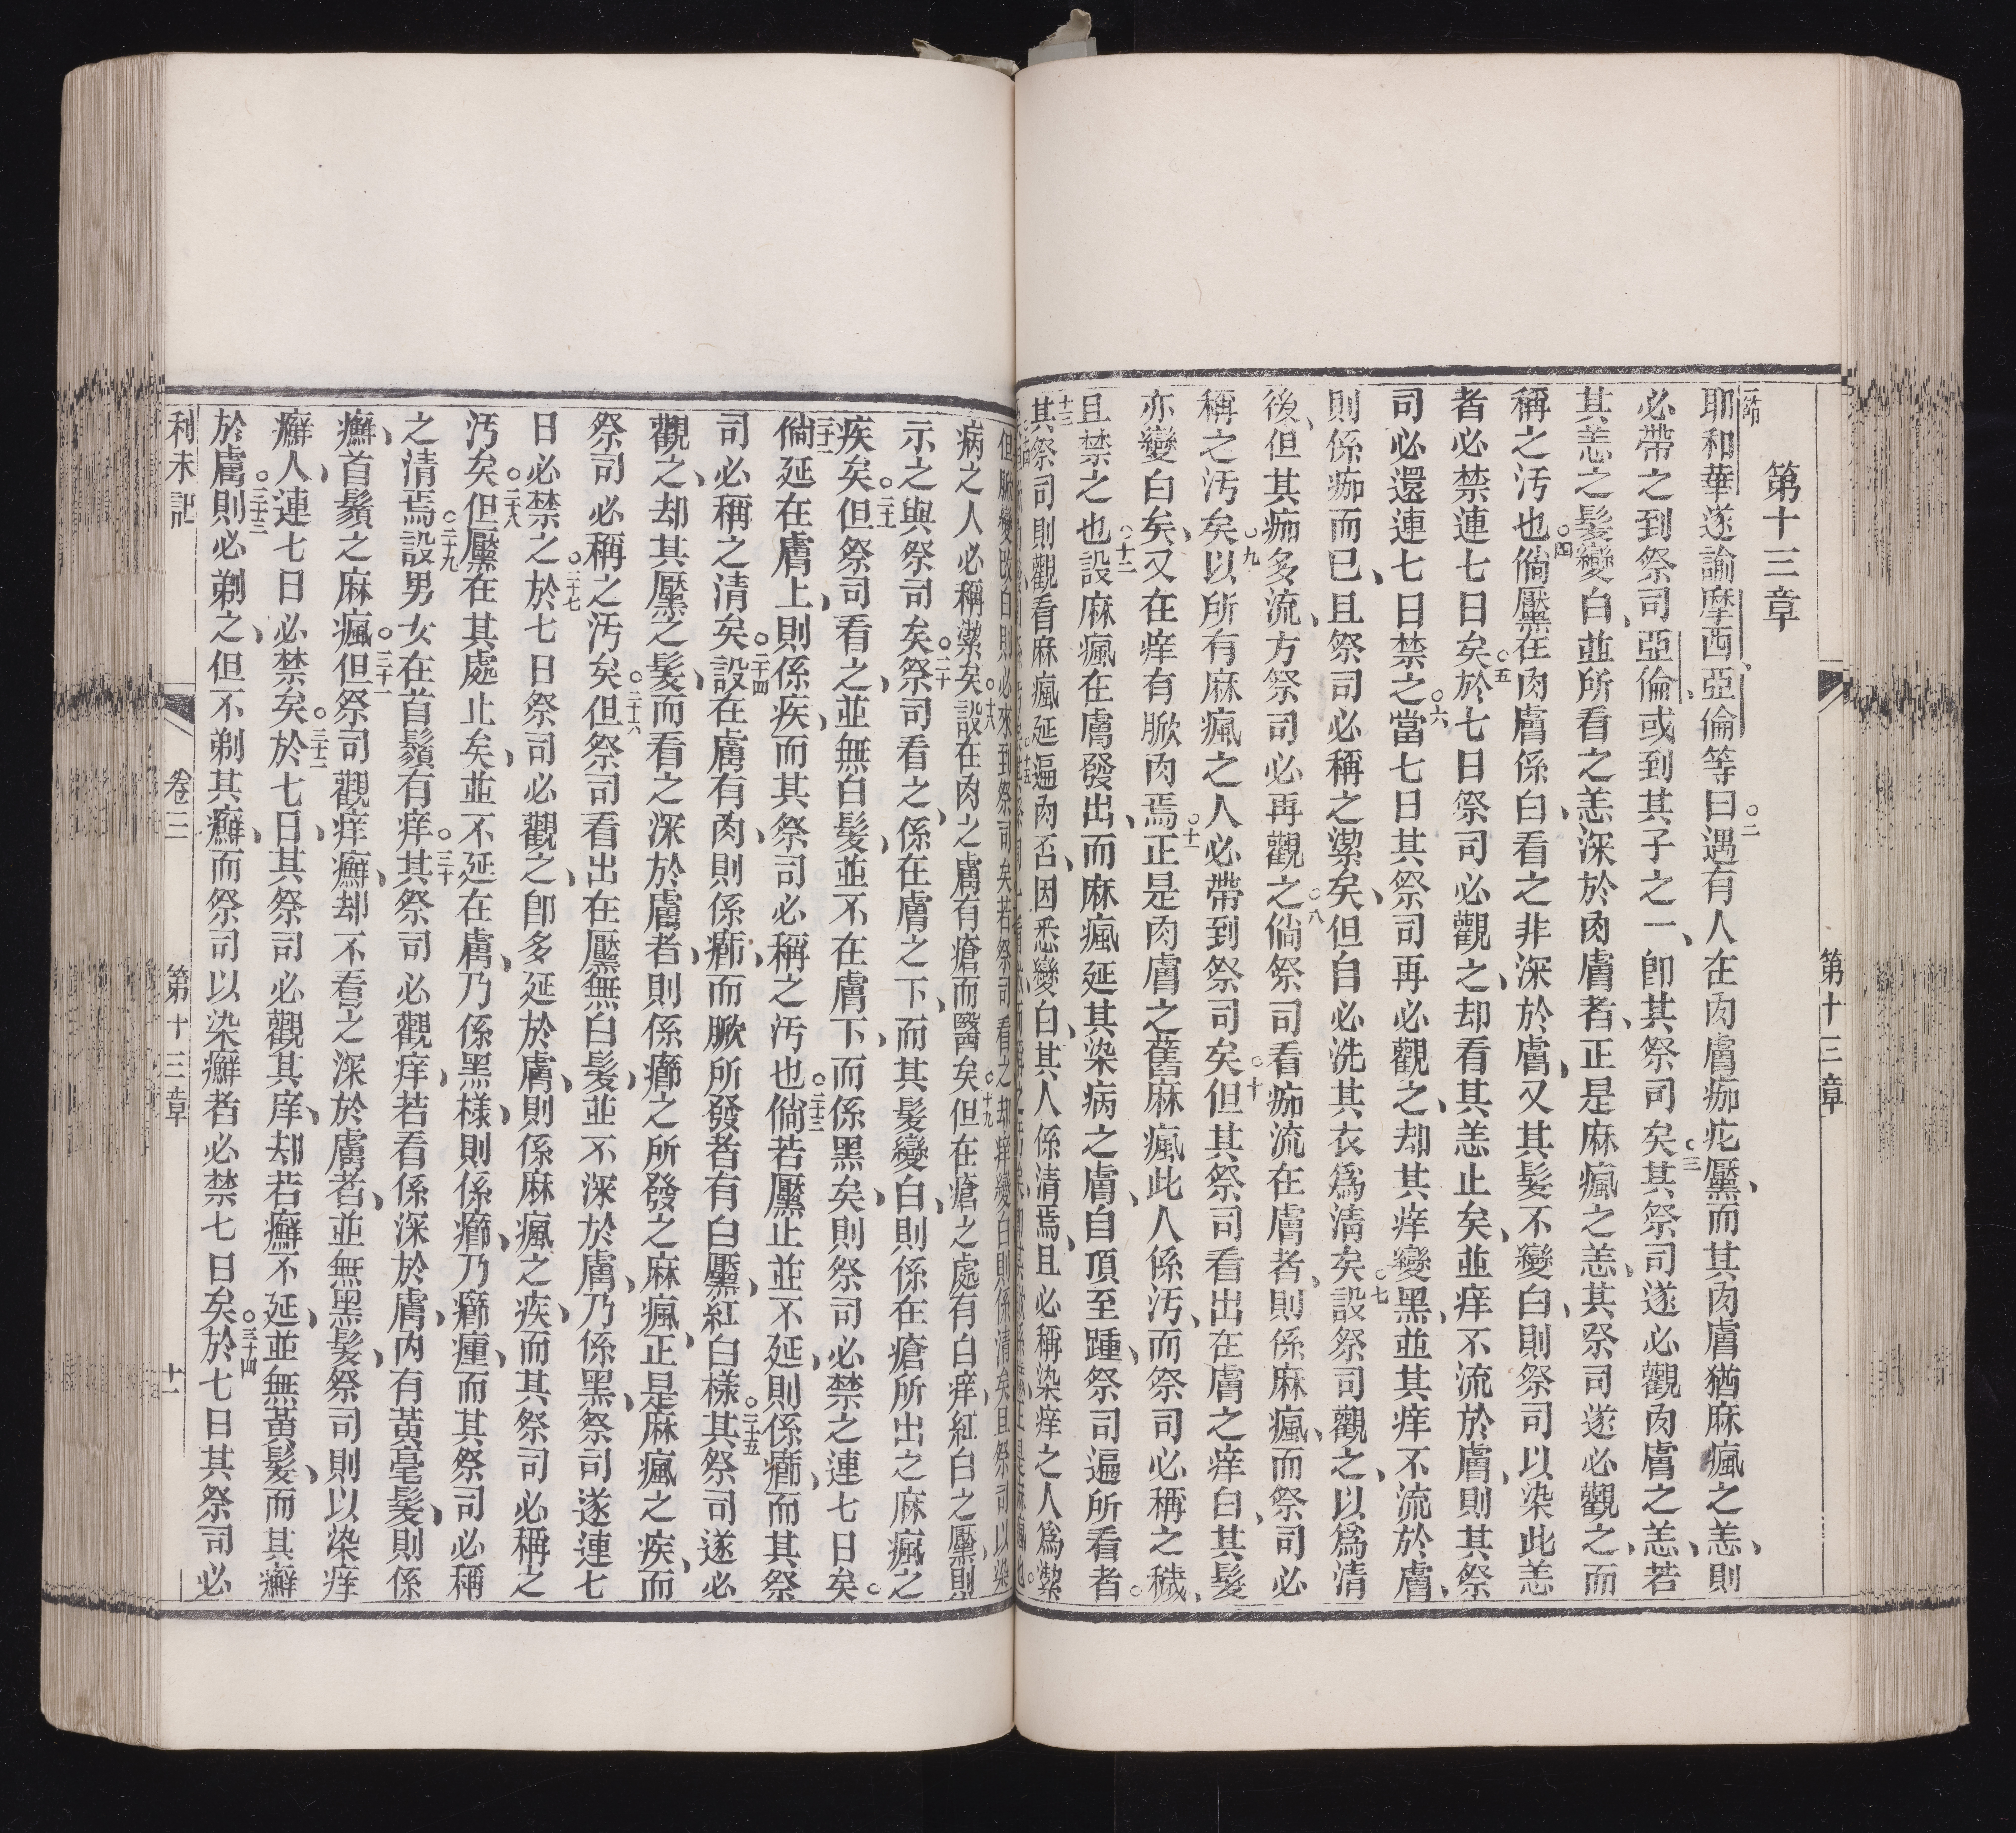 第十三章
耶和華遂諭摩西、亞倫等曰。二遇有人在肉膚痂疕黶、而其肉膚猶麻瘋之恙、則
必帶之到祭司亞倫、或到其子之一、卽其祭司矣。三其祭司遂必觀肉膚之恙、若
其恙之髮變白、並所看之恙深於肉膚者、正是麻瘋之恙、其祭司遂必觀之、而
稱之汚也。四倘黶在肉膚係白、看之非深於膚、又其髮不變白、則祭司以染此恙
者必禁連七日矣。五於七日祭司必觀之、却看其恙止矣、並痒不流於膚、則其祭
司必還連七日禁之。六當七日其祭司再必觀之、却其痒變黑、並其痒不流於膚、
則係痂而已、且祭司必稱之潔矣、但自必洗其衣爲清矣。七設祭司觀之、以爲清
後、但其痂多流、方祭司必再觀之。八倘祭司看痂流在膚者、則係麻瘋、而祭司必
稱之汚矣。九以所有麻瘋之人必帶到祭司矣。十但其祭司看出在膚之痒白、其髮
亦變白矣、又在痒有脓肉焉。十一正是肉膚之舊麻瘋、此人係汚、而祭司必稱之穢、
且禁之也。十二設麻瘋在膚發出、而麻瘋延其染病之膚、自頂至踵、祭司遍所看者。
十三其祭司則觀看麻瘋延遍肉否、因悉變白、其人係清焉、且必稱染痒之人爲潔
病之人必稱潔矣。十八設在肉之膚有瘡而醫矣。十九但在瘡之處有白痒、紅白之黶、則
示之與祭司矣。二十祭司看之、係在膚之下、而其髮變白、則係在瘡所出之麻瘋之
疾矣。二十一但祭司看之、並無白髮、並不在膚下、而係黑矣、則祭司必禁之連七日矣。
二十二倘延在膚上、則係疾、而其祭司必稱之汚也。二十三倘若黶止、並不延、則係癤、而其祭
司必稱之清矣。二十四設在膚有肉、則係癤、而脓所發者有白黶、紅白樣。二十五其祭司遂必
觀之、却其黶之髮、而看之深於膚者、則係癤之所發之麻瘋、正是麻瘋之疾、而
祭司必稱之汚矣。二十六但祭司看出在黶無白髮、並不深於膚、乃係黑、祭司遂連七
日必禁之。二十七於七日祭司必觀之、卽多延於膚、則係麻瘋之疾、而其祭司必稱之
汚矣。二十八但黶在其處止矣、並不延在膚、乃係黑樣、則係癤、乃癤瘇、而其祭司必稱
之清焉。二十九設男女在首鬚有痒。三十其祭司必觀痒、若看係深於膚、內有黃毫髮、則係
癬、首鬚之麻瘋。三十一但祭司觀痒癬、却不看之深於膚者、並無黑髮、祭司則以染痒
癬人、連七日必禁矣。三十二於七日、其祭司必觀其痒、却若癬不延、並無黃髮、而其癬
於膚。三十三則必剃之、但不剃其癬、而祭司以染癬者必禁七日矣。三十四於七日其祭司必
利未記 卷三 第十三章 十一
第十三章